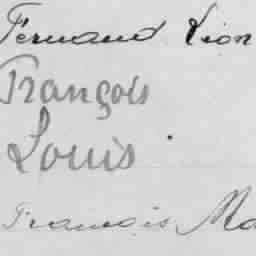 Fernand Lion
François
Louis
Francis Ma